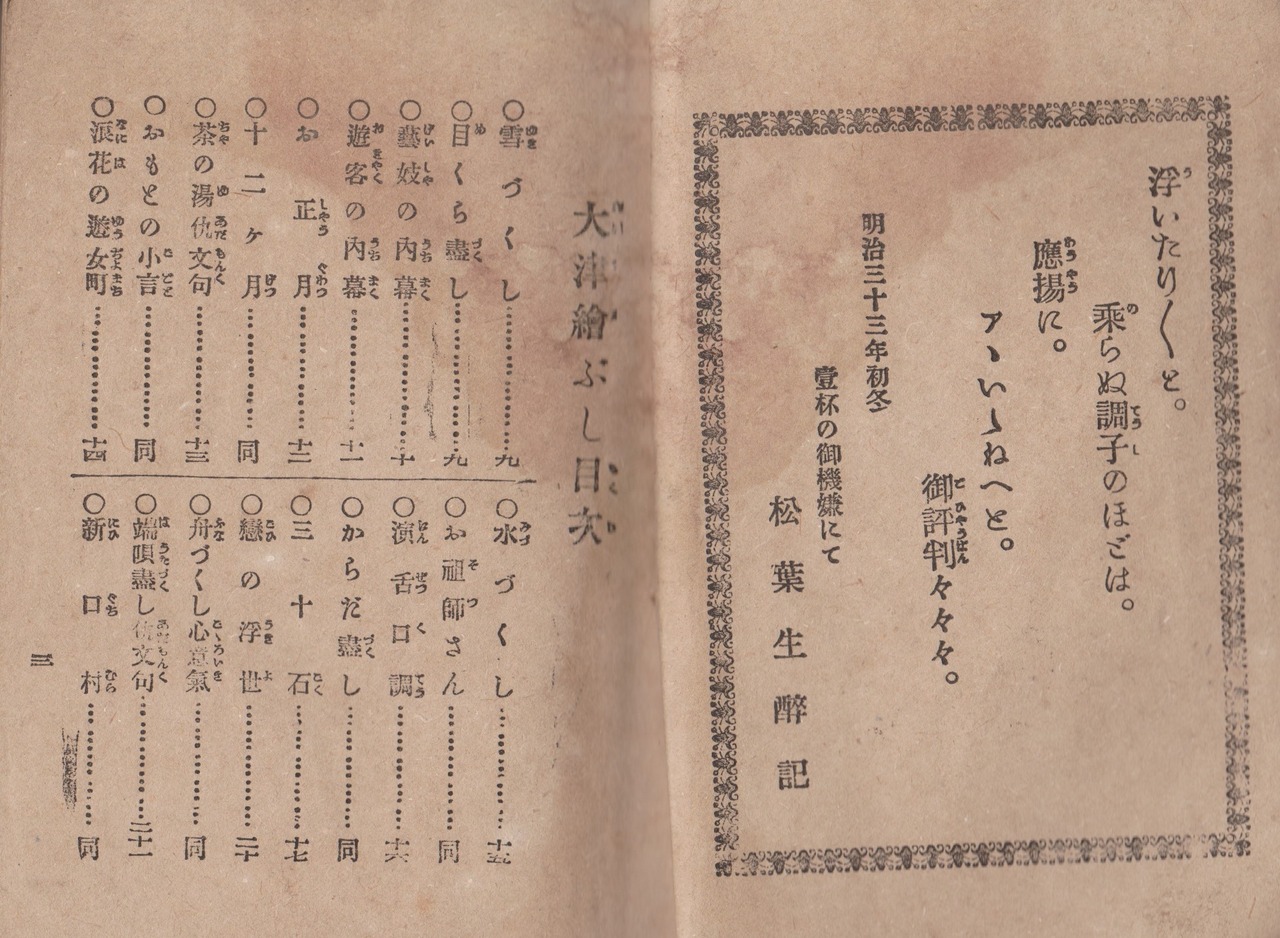 浮いたり〱と。
乘らぬ調子のほどは。
應揚に。
アヽいゝねへと。
御評判々々々。
明治三十三年初冬
壹杯の御機嫌にて
松葉生醉記
大津繪ぶし目次
〇雪づくし………九
〇目くら盡し………九
〇藝妓の內幕………十
〇遊客の內幕………十一
〇お正月………十二
〇十二ヶ月………同
〇茶の湯仇文句………十三
〇おもとの小言………同
〇浪花の遊女町………十四
〇水づくし………十五
〇お祖師さん………同
〇演舌口調………十六
〇からだ盡し………同
〇三十石………十七
〇戀の浮世………二十
〇舟づくし心意氣………同
〇端唄盡し仇文句………二十一
〇新口村………同
三